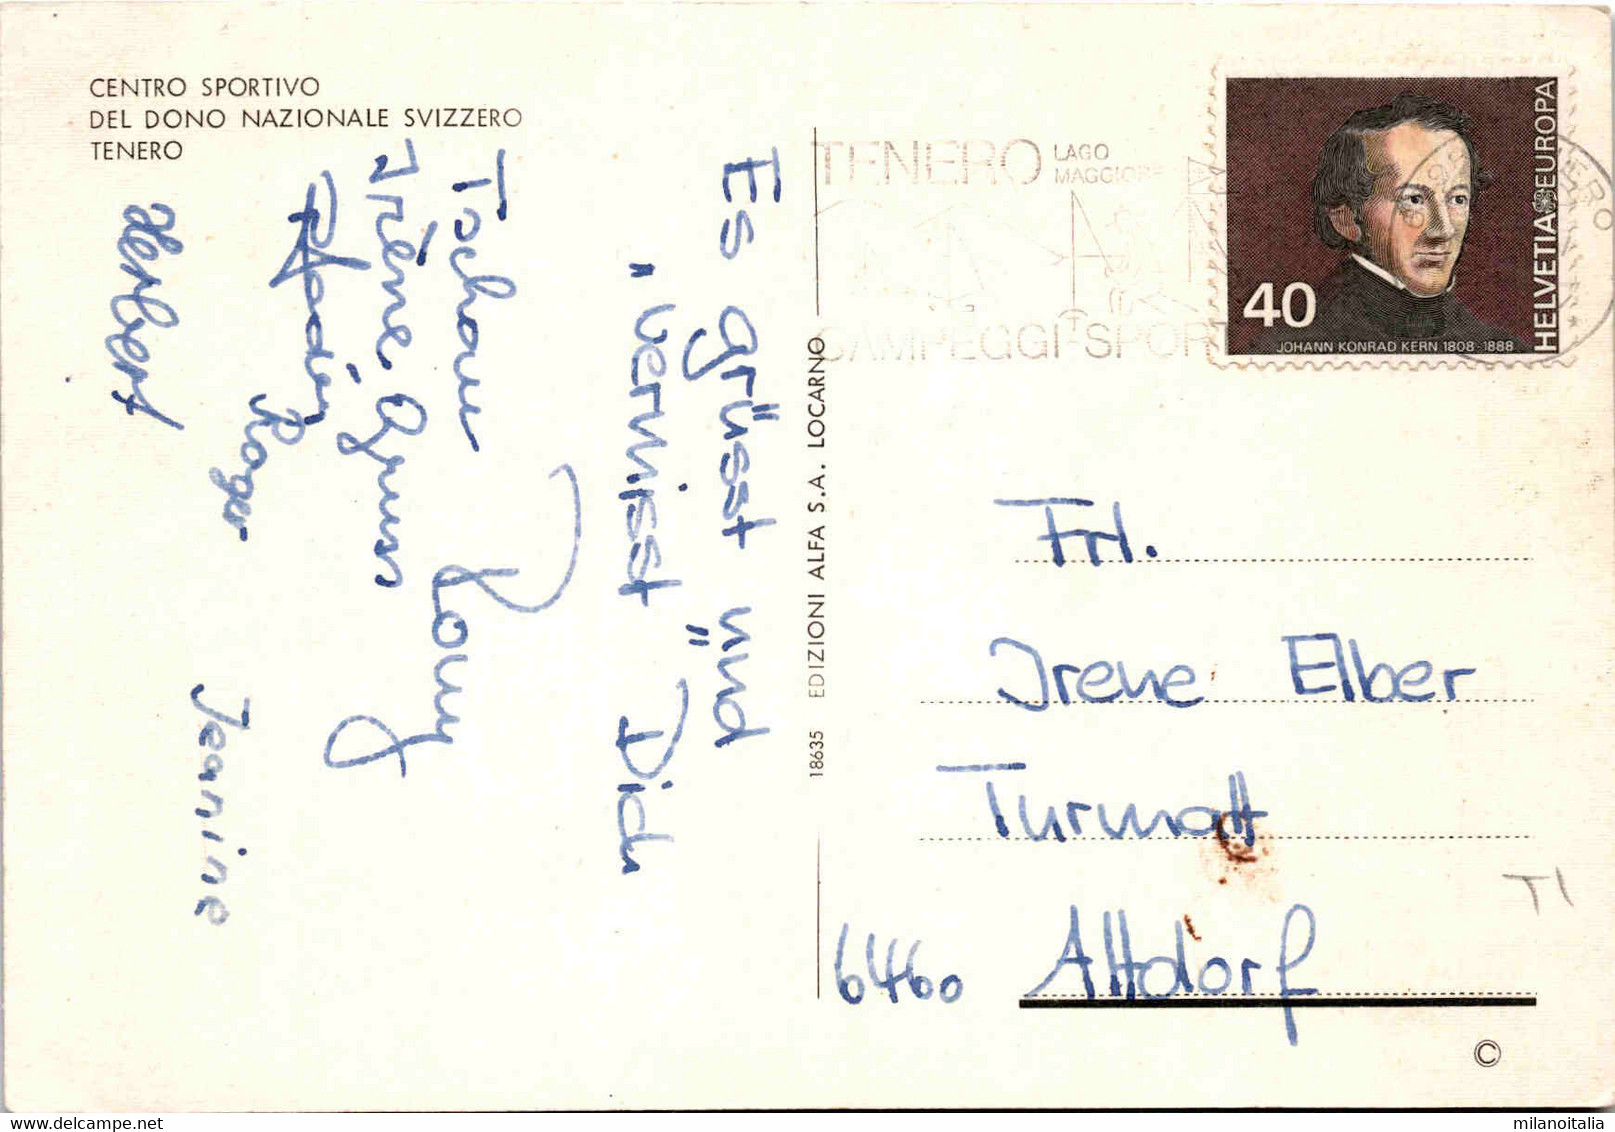 CENTRO SPORTIVO
DEL DONO NAZIONALE SVIZZERO
TENERO
TENERO LAGO
MAGGIORE
CAMPEGGI-SPORT
40
JOHANN KONRAD KERN 1808-1888
HELVETIA EUROPA
Es grüsst und
„vermisst" Dich
Tschau
Rony
Irène
Roger
Jeanine
Herbert
18635 EDIZIONI ALFA S.A. LOCARNO
Frl.
Irene Elber
Turmatt
6460 Altdorf
TI
©
milanoitalia